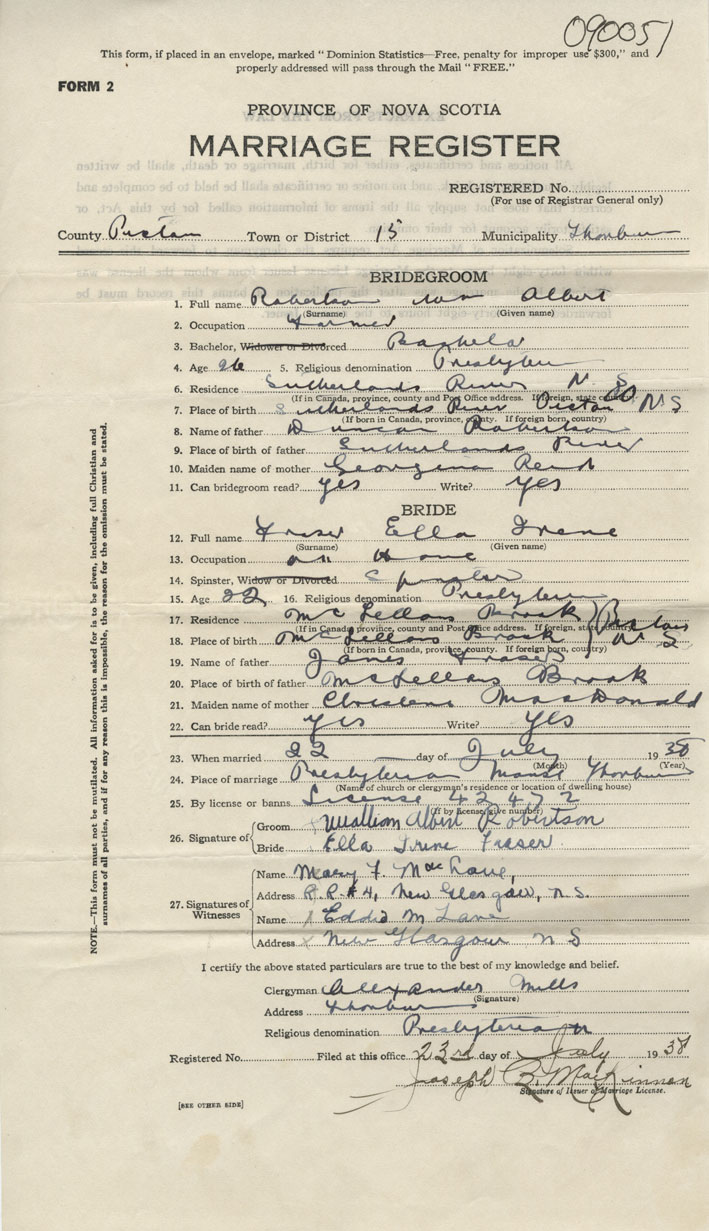 090051
This form, if placed in an envelope, marked "Dominion Statistics—Free, penalty for improper use $300," and
properly addressed will pass through the Mail "FREE."
FORM 2
PROVINCE OF NOVA SCOTIA
MARRIAGE REGISTER
REGISTERED No.
(For use of Registrar General only)
County Pictou Town or District 15 Municipality Thorburn
BRIDEGROOM
1. Full name Robertson Wm Albert
(Surname) (Given name)
2. Occupation Farmer
3. Bachelor, Widower or Divorced Bachelor
4. Age 26 5. Religious denomination Presbyterian
6. Residence Sutherlands River N. S.
(If in Canada, province, county and Post Office address. If foreign, state country)
7. Place of birth Sutherlands River Pictou Co N S
(If born in Canada, province, county. If foreign born, country)
8. Name of father Duncan Robertson
9. Place of birth of father Sutherlands River
10. Maiden name of mother Georgina Reid
11. Can bridegroom read? yes Write? yes
BRIDE
12. Full name Fraser Ella Irene
(Surname) (Given name)
13. Occupation at Home
14. Spinster, Widow or Divorced Spinster
15. Age 22 16. Religious denomination Presbyterian
17. Residence McLellans Brook Pictou
(If in Canada province, county and Post Office address. If foreign, state country)
18. Place of birth McLellans Brook N S
(If born in Canada, province, county. If foreign born, country)
19. Name of father James Fraser
20. Place of birth of father McLellans Brook
21. Maiden name of mother Christena MacDonald
22. Can bride read? yes Write? yes
23. When married 22 day of July 1938
(Month) (Year)
24. Place of marriage Presbyterian Manse Thorburn
(Name of church or clergyman's residence or location of dwelling house)
25. By license or banns License 42472
(If by License, give number)
26. Signature of Groom William Albert Robertson
Bride Ella Irene Fraser
27. Signatures of Witnesses
Name Mary F. MacLane,
Address R.R.#4, New Glasgow, N.S.
Name Eddie M Lane
Address New Glasgow N S
I certify the above stated particulars are true to the best of my knowledge and belief.
Clergyman Alexander Mills
(Signature)
Address Thorburn
Religious denomination Presbyterian
Registered No. Filed at this office 23rd day of July 1938
Joseph B. MacKinnon
Signature of Issuer of Marriage License.
[SEE OTHER SIDE]
NOTE.—This form must not be mutilated. All information asked for is to be given, including full Christian and
surnames of all parties, and if for any reason this is impossible, the reason for the omission must be stated.